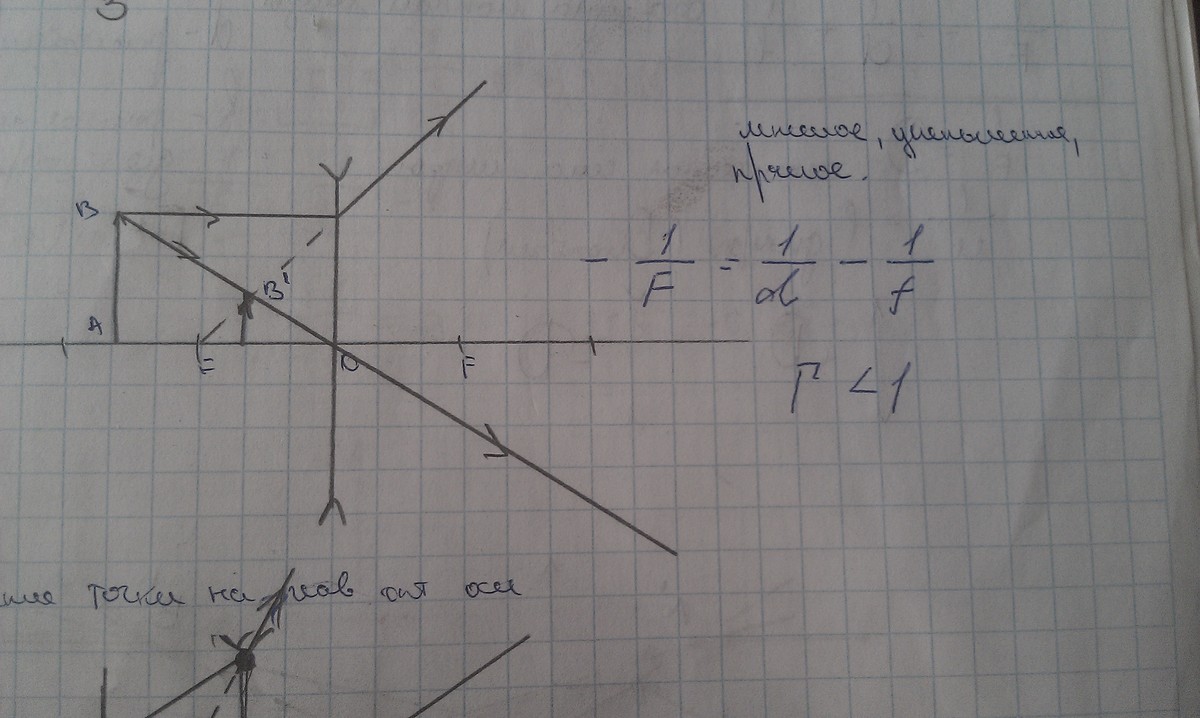 3
мнимое, уменьшенное,
прямое.
B
B'
A
F
O
F
- 1/F = 1/d - 1/f
Г < 1
точки на глав опт оси